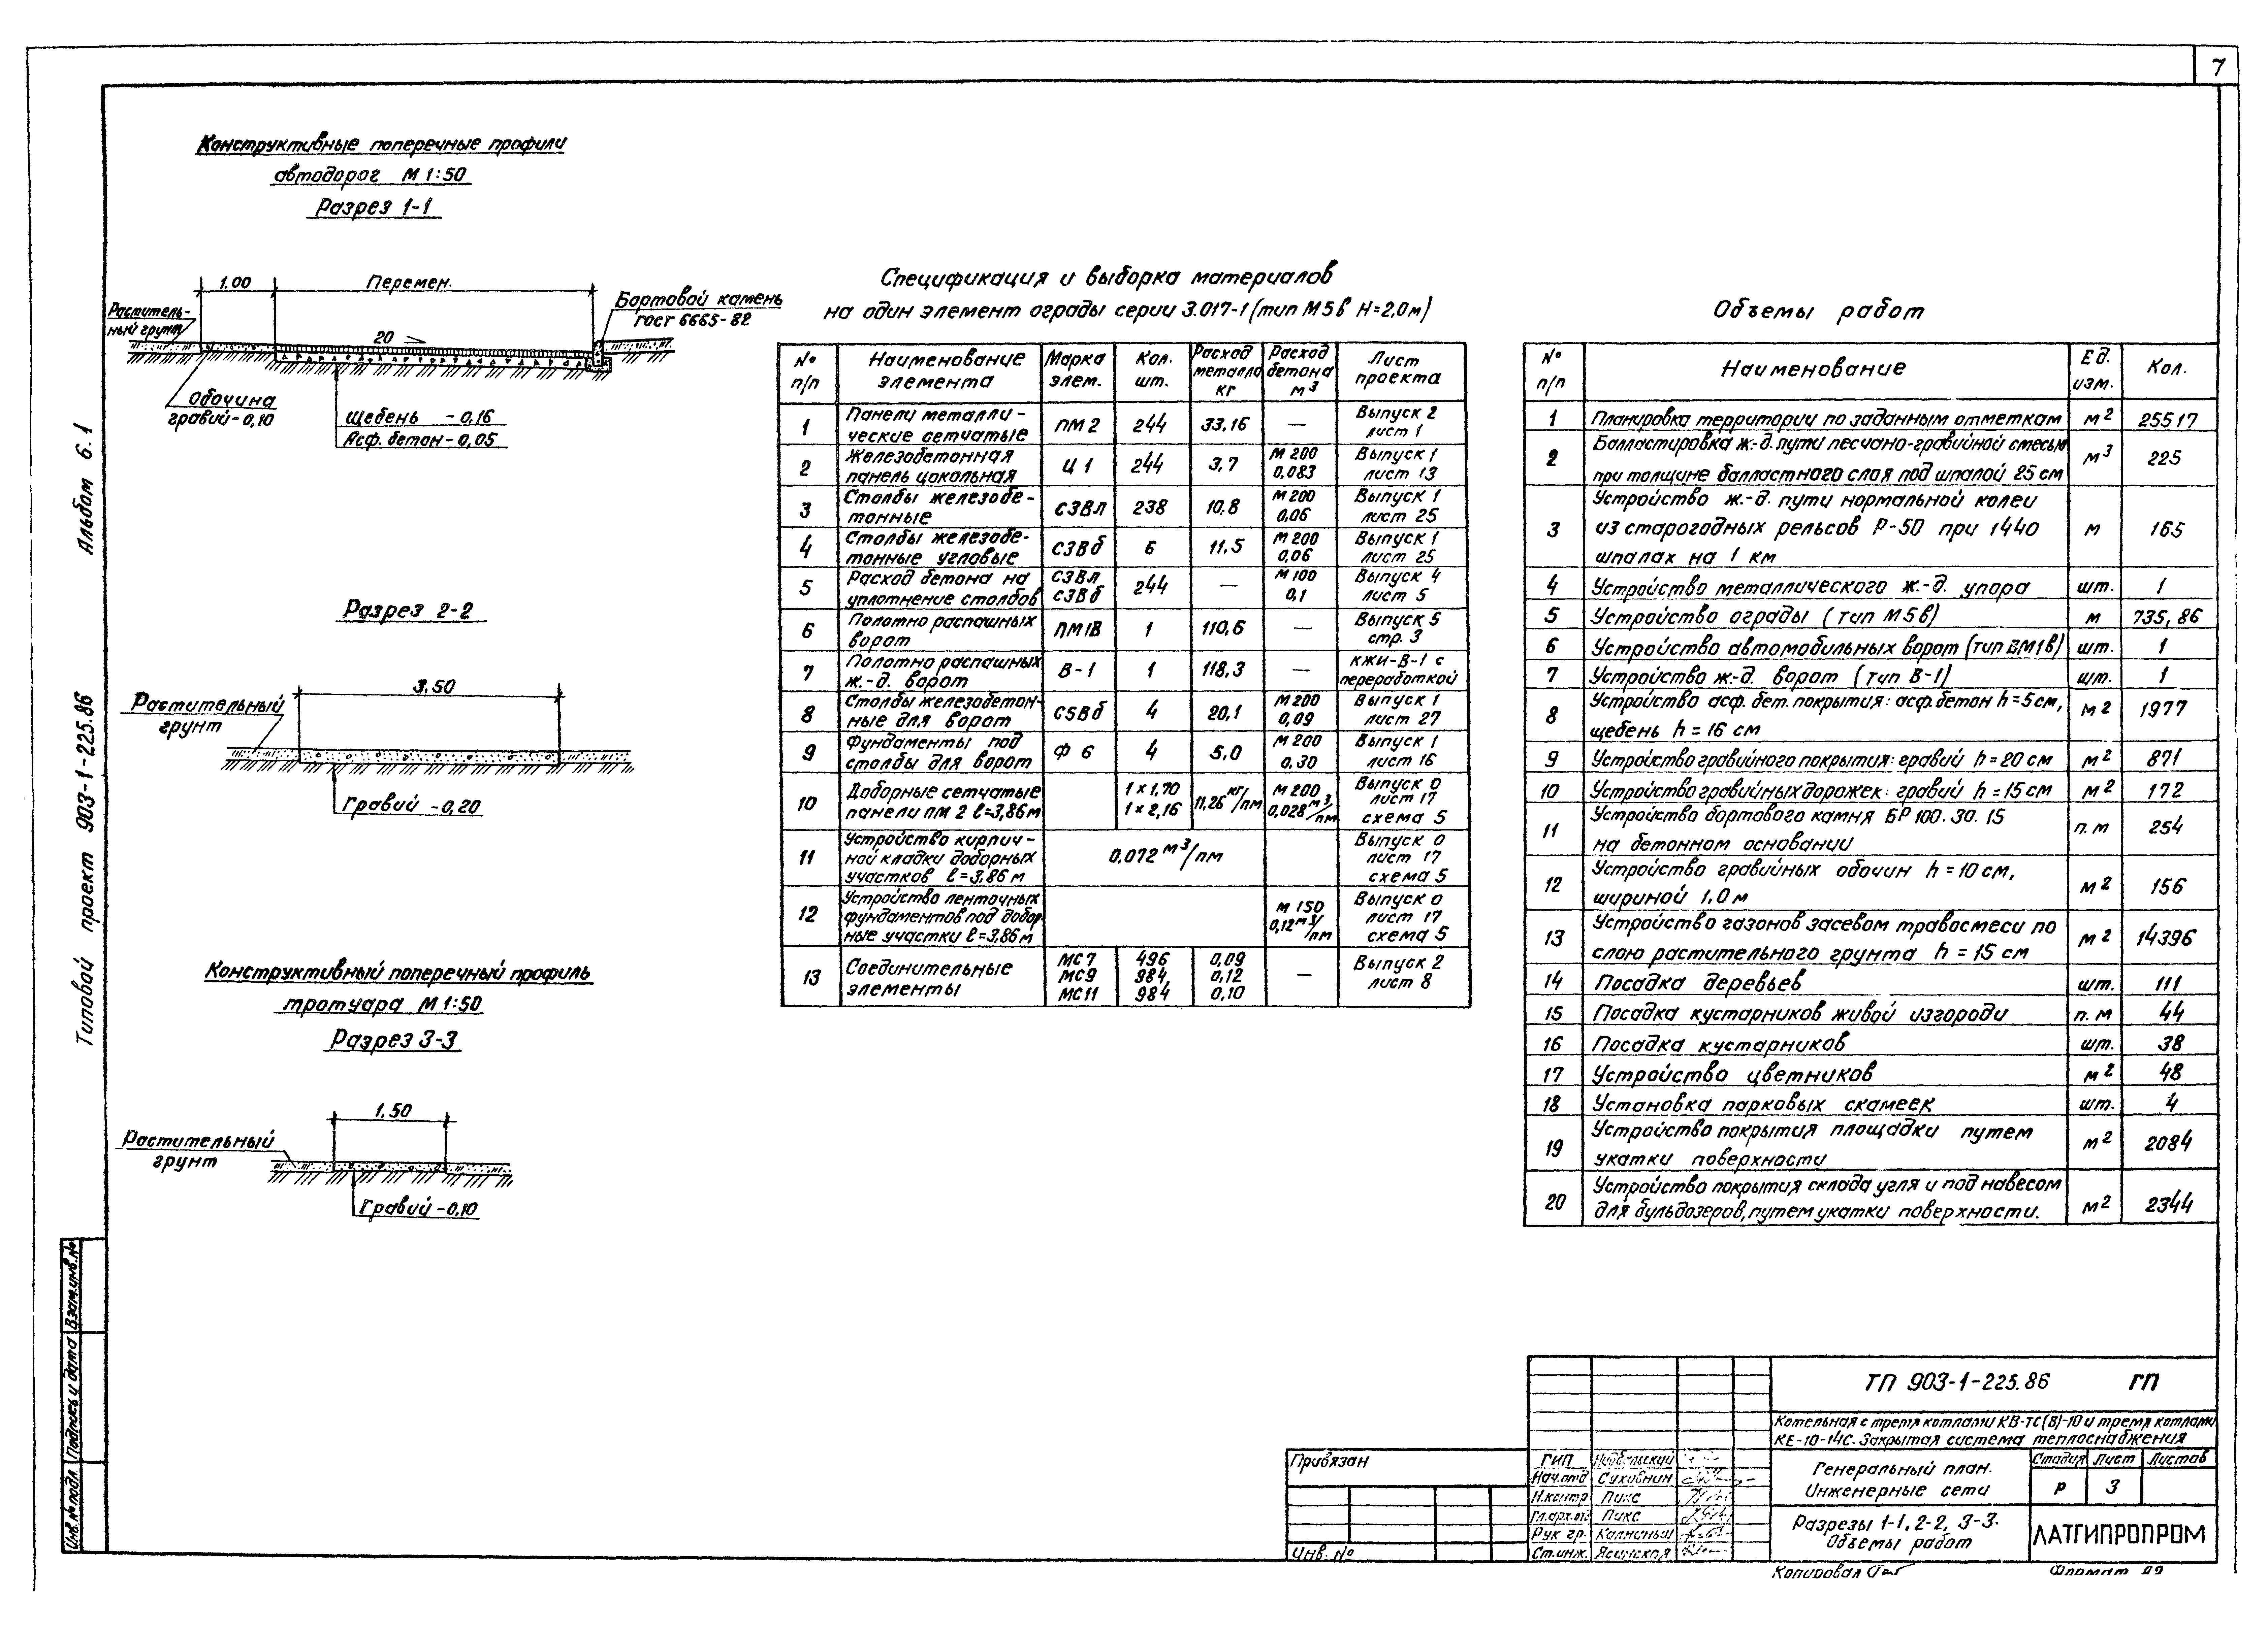 7
Конструктивные поперечные профили
автодорог М 1:50
Разрез 1-1
1.00
Перемен.
Раститель-
ный грунт
20
Бортовой камень
ГОСТ 6665-82
Обочина
гравий-0,10
щебень -0,16
Асф. бетон-0,05
Разрез 2-2
3,50
Растительный
грунт
Гравий -0,20
Конструктивный поперечный профиль
тротуара М 1:50
Разрез 3-3
1,50
Растительный
грунт
Гравий-0,10
Альбом 6.1
Типовой проект 903-1-225.86
Инв. № подл. Подпись и дата Взам. инв. №
Спецификация и выборка материалов
на один элемент ограды серии 3.017-1 (тип М5в Н=2,0м)
№ п/п Наименование элемента Марка элем. Кол. шт. Расход металла кг Расход бетона м3 Лист проекта
1 Панели металли- ПМ2 244 33,16 — Выпуск 2
ческие сетчатые лист 1
2 Железобетонная Ц1 244 3,7 М 200 Выпуск 1
панель цокольная 0,083 лист 13
3 Столбы железобе- С3Вл 238 10.8 М 200 Выпуск 1
тонные 0,06 лист 25
4 Столбы железобе- С3Вб 6 11.5 М 200 Выпуск 1
тонные угловые 0,06 лист 25
5 Расход бетона на С3Вл 244 — М 100 Выпуск 4
уплотнение столбов С3Вб 0,1 лист 5
6 Полотно распашных ПМ1В 1 110,6 — Выпуск 5
ворот стр. 3
7 Полотно распашных В-1 1 118,3 — КЖИ-В-1 с
ж.-д. ворот переработкой
8 Столбы железобетон- С5Вб 4 20,1 М 200 Выпуск 1
ные для ворот 0,09 лист 27
9 Фундаменты под Ф 6 4 5.0 М 200 Выпуск 1
столбы для ворот 0,30 лист 16
10 Доборные сетчатые 1×1,70 11,26 кг/пм М 200 Выпуск 0
панели ПМ 2 ℓ=3,86м 1×2,16 0,028 м3/пм лист 17
схема 5
11 Устройство кирпич- 0,072 м3/пм Выпуск 0
ной кладки доборных лист 17
участков ℓ=3,86 м схема 5
12 Устройство ленточных М 150 Выпуск 0
фундаментов под добор- 0,12 м3/пм лист 17
ные участки ℓ=3,86м схема 5
13 Соединительные МС7 496 0,09 — Выпуск 2
элементы МС9 984 0,12 лист 8
МС11 984 0,10
Объемы работ
№ п/п Наименование Ед. изм. Кол.
1 Планировка территории по заданным отметкам м2 25517
2 Балластировка ж.-д. пути песчано-гравийной смесью м3 225
при толщине балластного слоя под шпалой 25 см
3 Устройство ж.-д. пути нормальной колеи м 165
из старогодных рельсов Р-50 при 1440
шпалах на 1 км
4 Устройство металлического ж.-д. упора шт. 1
5 Устройство ограды (тип М5в) м 735,86
6 Устройство автомобильных ворот (тип ВМ1В) шт. 1
7 Устройство ж.-д. ворот (тип В-1) шт. 1
8 Устройство асф. бет. покрытия: асф. бетон h=5см, м2 1977
щебень h = 16 см
9 Устройство гравийного покрытия: гравий h=20 см м2 871
10 Устройство гравийных дорожек: гравий h=15 см м2 172
11 Устройство бортового камня БР 100. 30. 15 п.м 254
на бетонном основании
12 Устройство гравийных обочин h=10см, м2 156
шириной 1,0м
13 Устройство газонов засевом травосмеси по м2 14396
слою растительного грунта h = 15 см
14 Посадка деревьев шт. 111
15 Посадка кустарников живой изгороди п.м 44
16 Посадка кустарников шт. 38
17 Устройство цветников м2 48
18 Установка парковых скамеек шт. 4
19 Устройство покрытия площадки путем м2 2084
укатки поверхности
20 Устройство покрытия склада угля и под навесом м2 2344
для бульдозеров, путем укатки поверхности.
ТП 903-1-225.86 ГП
Котельная с тремя котлами КВ-ТС(В)-10 и тремя котлами
КЕ-10-14С. Закрытая система теплоснабжения
Генеральный план.
Инженерные сети
Стадия Лист Листов
Р 3
Разрезы 1-1, 2-2, 3-3.
Объемы работ
ЛАТГИПРОПРОМ
Привязан
Инв. №
ГИП
Нач. отд Суховнин
Н. контр Пикс
Гл. арх. от. Пикс
Рук гр. Калниньш
Ст. инж. Ясинская
Копировал
Формат А2